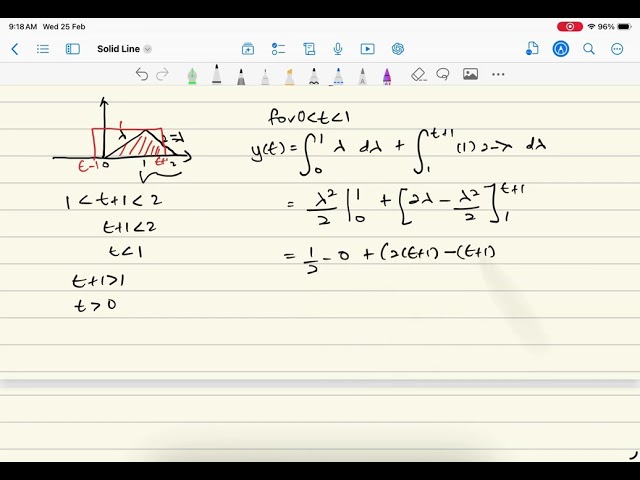 9:18 AM Wed 25 Feb
96%
Solid Line
1
λ
2-λ
t-1 0 1 t+1 2
1 < t+1 < 2
t+1 < 2
t < 1
t+1 > 1
t > 0
for 0 < t < 1
y(t) = ∫_0^1 λ dλ + ∫_1^{t+1} (1) 2-λ dλ
= λ²/2 |_0^1 + [2λ - λ²/2]_1^{t+1}
= 1/2 - 0 + (2(t+1) - (t+1)